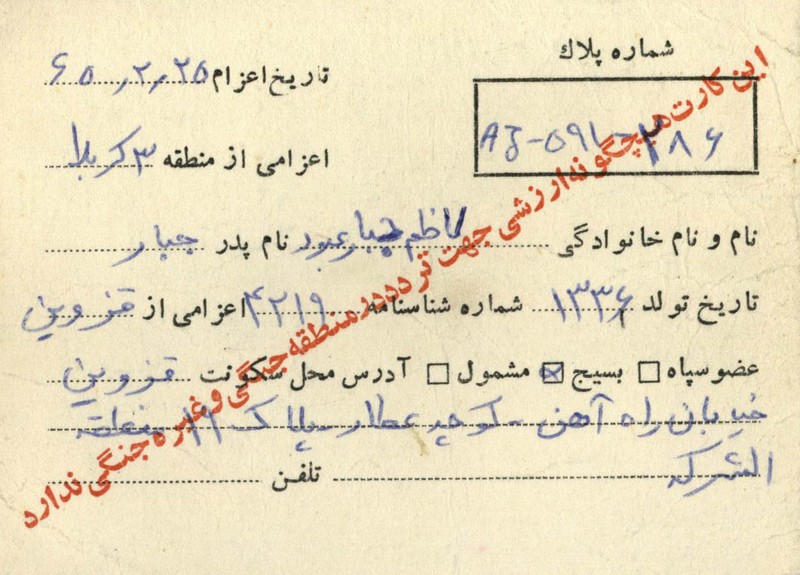 شماره پلاك
AJ-091-286
تاریخ اعزام ۶۵,۲,۲۵
اعزامی از منطقه ۳ کربلا
نام و نام خانوادگی کاظم جبار عبود نام پدر جبار
تاریخ تولد ۱۳۳۶ شماره شناسنامه ۴۲۱۹ اعزامی از قزوین
عضو سپاه بسیج مشمول آدرس محل سکونت قزوین
خیابان راه آهن - کوچه عطار - پلاک ۱۹ منطقه
الشرکه
تلفن
این کارت هیچگونه ارزشی جهت تردد در منطقه جنگی و غیره جنگی ندارد